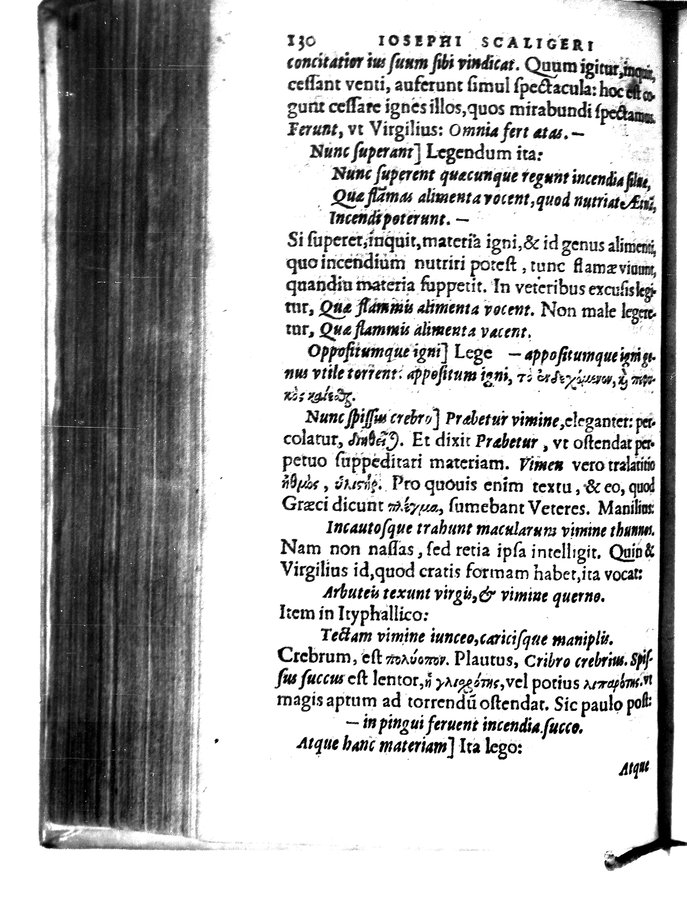 130 IOSEPHI SCALIGERI
concitatior ius suum sibi vindicat. Quum igitur, inquit,
cessant venti, auferunt simul spectacula: hoc est co-
gunt cessare ignes illos, quos mirabundi spectamus.
Ferunt, vt Virgilius: Omnia fert ætas.—
Nunc superant] Legendum ita:
Nunc superent quæcunque regunt incendia siluæ,
Quæ flāmas alimenta vocent, quod nutriat Ætnā,
Incendi poterunt. —
Si superet, inquit, materia igni, & id genus alimenti,
quo incendium nutriri potest, tunc flamæ viuunt,
quandiu materia suppetit. In veteribus excusis legi-
tur, Quæ flammis alimenta vocent. Non male legere-
tur, Quæ flammis alimenta vacent.
Oppositumque igni] Lege — appositumque igni ge-
nus vtile torrent: appositum igni, τὸ ἐνδεχόμενον,
Nunc spissus crebro] Præbetur vimine, eleganter: per-
colatur, διηθεῖται. Et dixit Præbetur, vt ostendat per-
petuo suppeditari materiam. Vimen vero tralatitio
ἠθμὸς, ὑλιστήρ. Pro quouis enim textu, & eo, quod
Græci dicunt πλέγμα, sumebant Veteres. Manilius:
Incautosque trahunt macularum vimine thunnos.
Nam non nassas, sed retia ipsa intelligit. Quin &
Virgilius id, quod cratis formam habet, ita vocat:
Arbuteis texunt virgis, & vimine querno.
Item in Ityphallico:
Tectam vimine iunceo, caricisque maniplis.
Crebrum, est πολύοπον. Plautus, Cribro crebrius. Spis-
sus succus est lentor, ἡ γλιχρότης, vel potius λιπαρότης. vt
magis aptum ad torrendū ostendat. Sic paulo post:
— in pingui feruent incendia succo.
Atque hanc materiam] Ita lego:
Atque